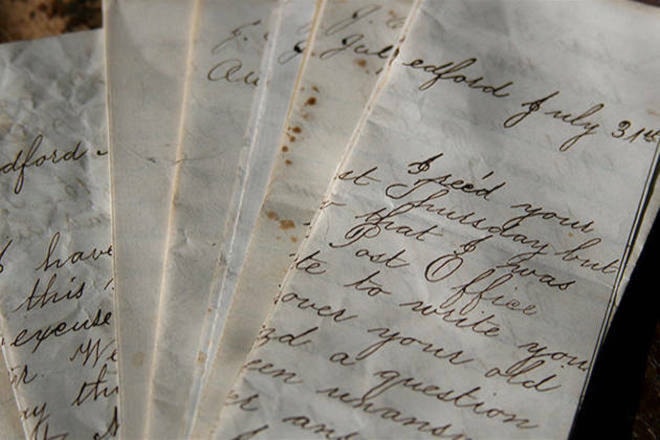 dford
I have
this
excuse
We
Jul
edford July 31st
I rec'd your
st Thursday but
that I was
Post Office
te to write you
over your old
a question
een unansw